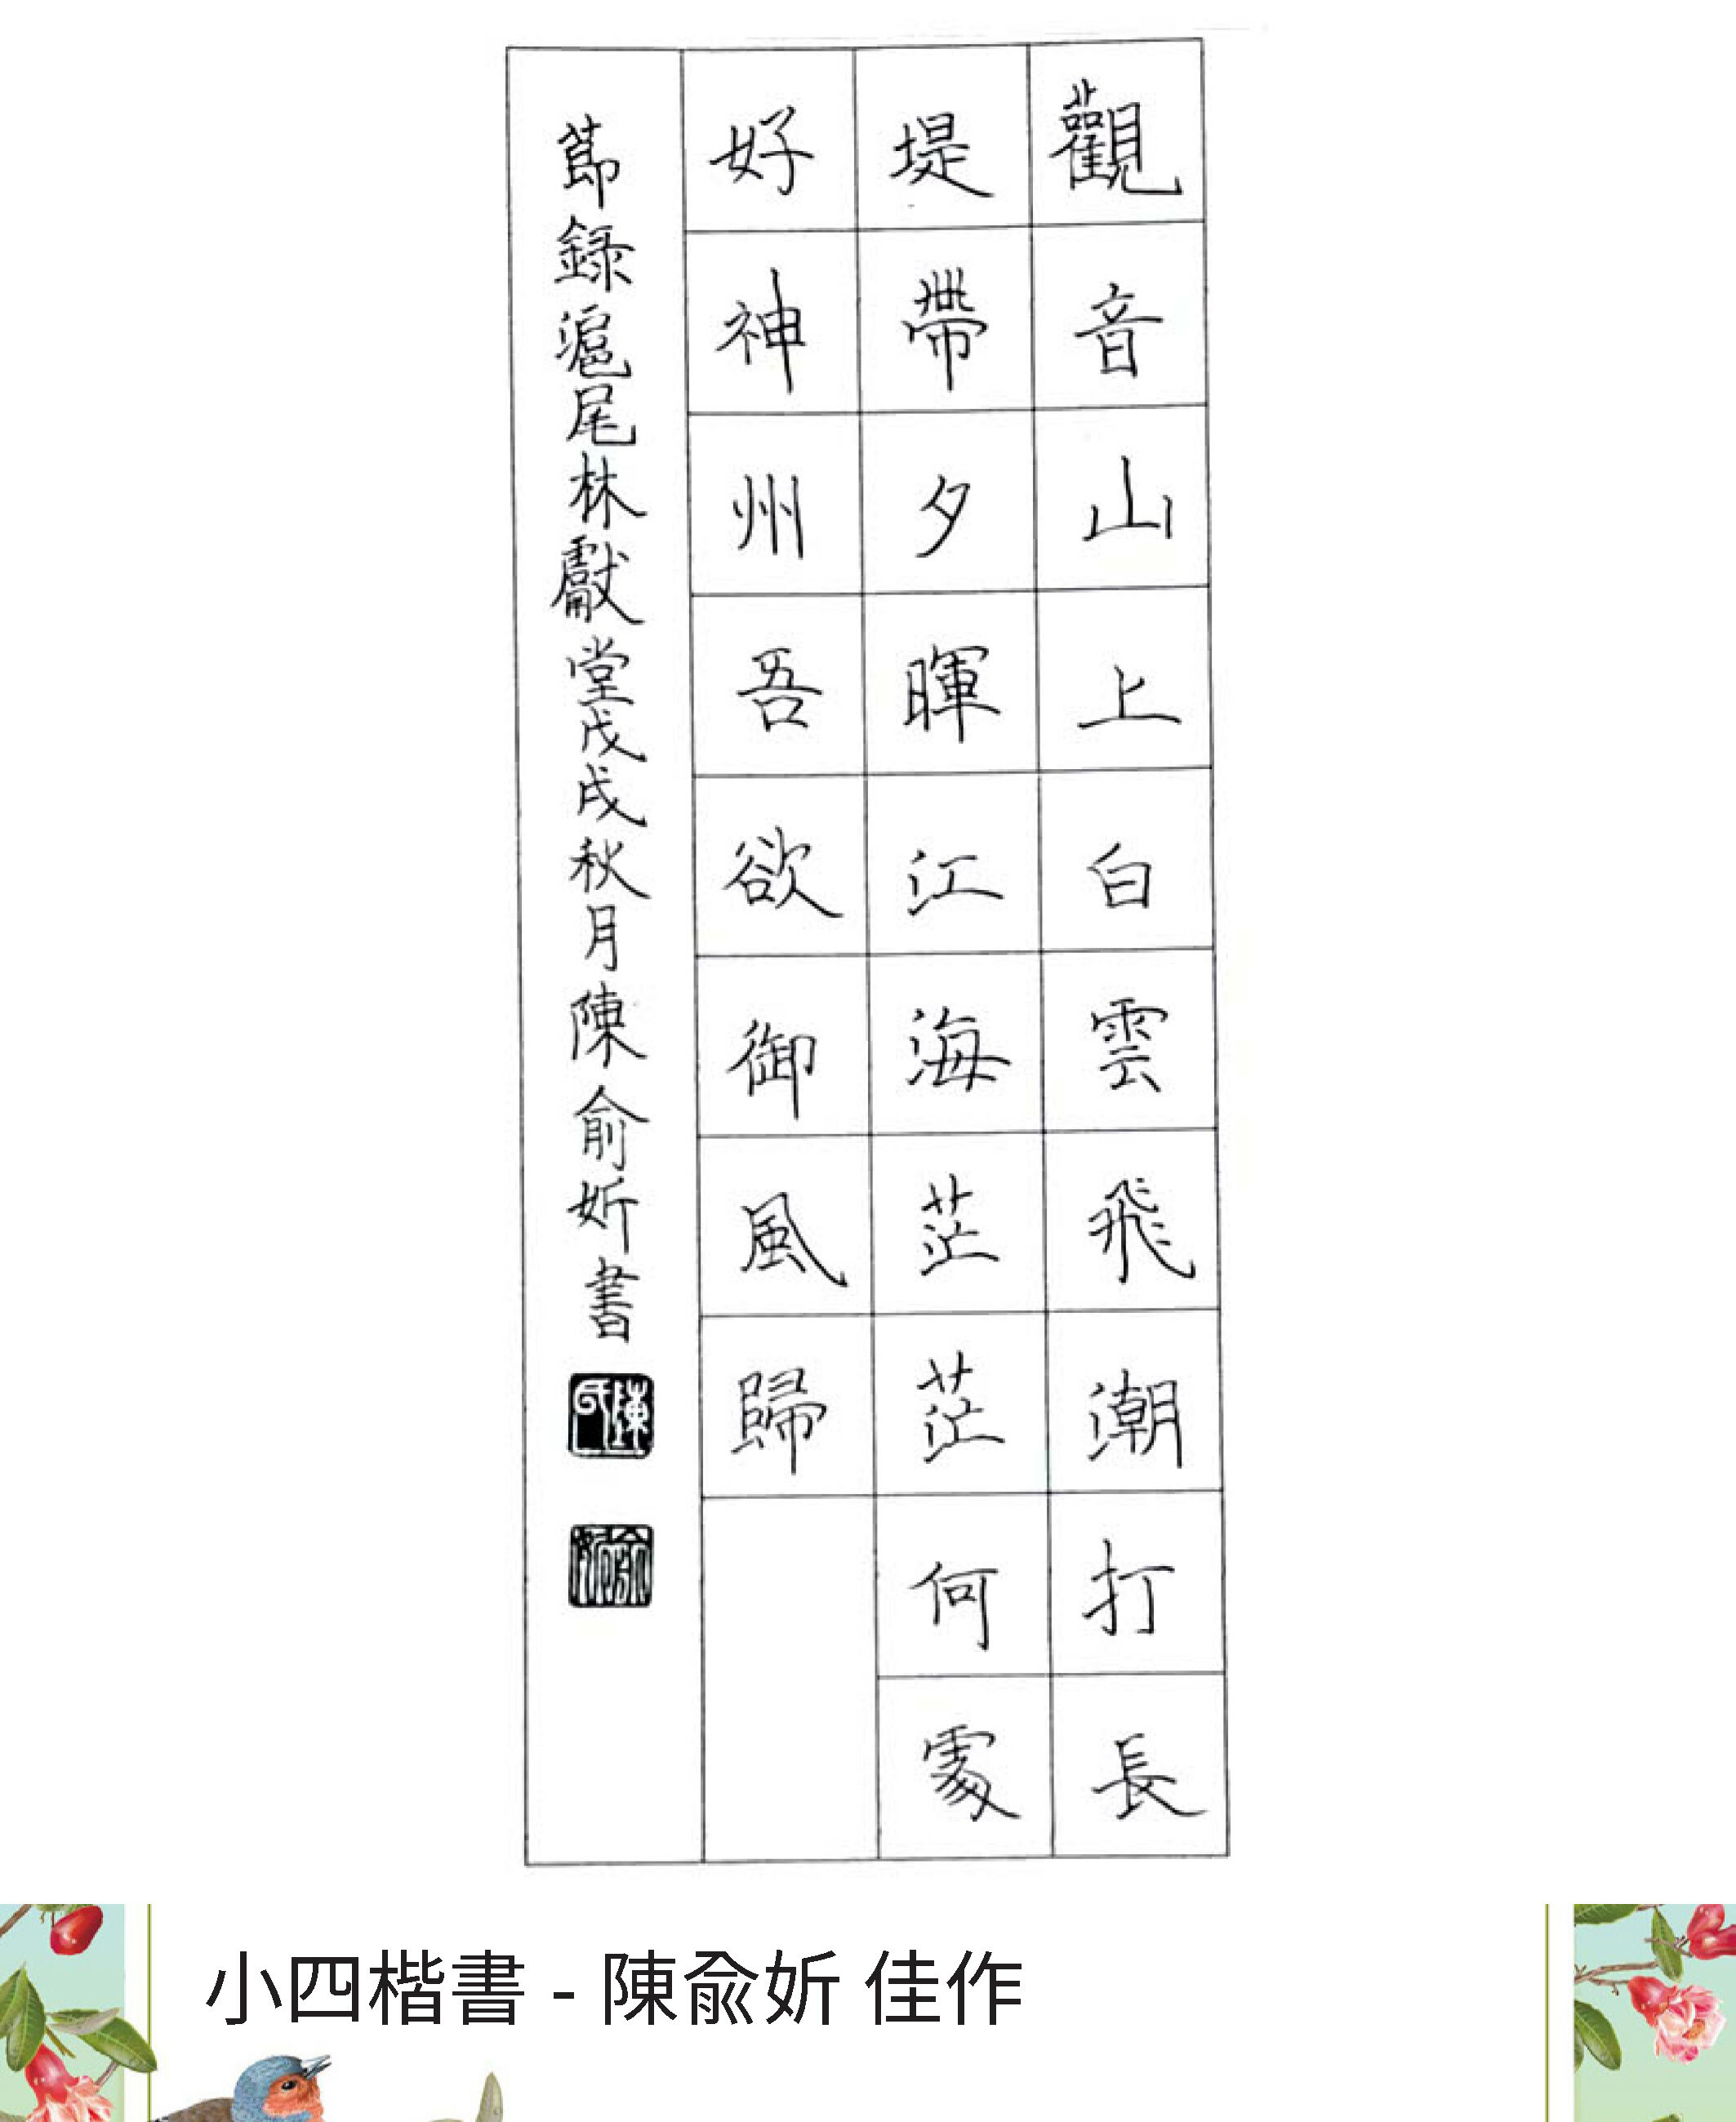 觀音山上白雲飛潮打長
堤帶夕暉江海茫茫何處
好神州吾欲御風歸
節録滬尾林獻堂戊戌秋月陳俞妡書
陳氏
俞妡
小四楷書 - 陳兪妡 佳作